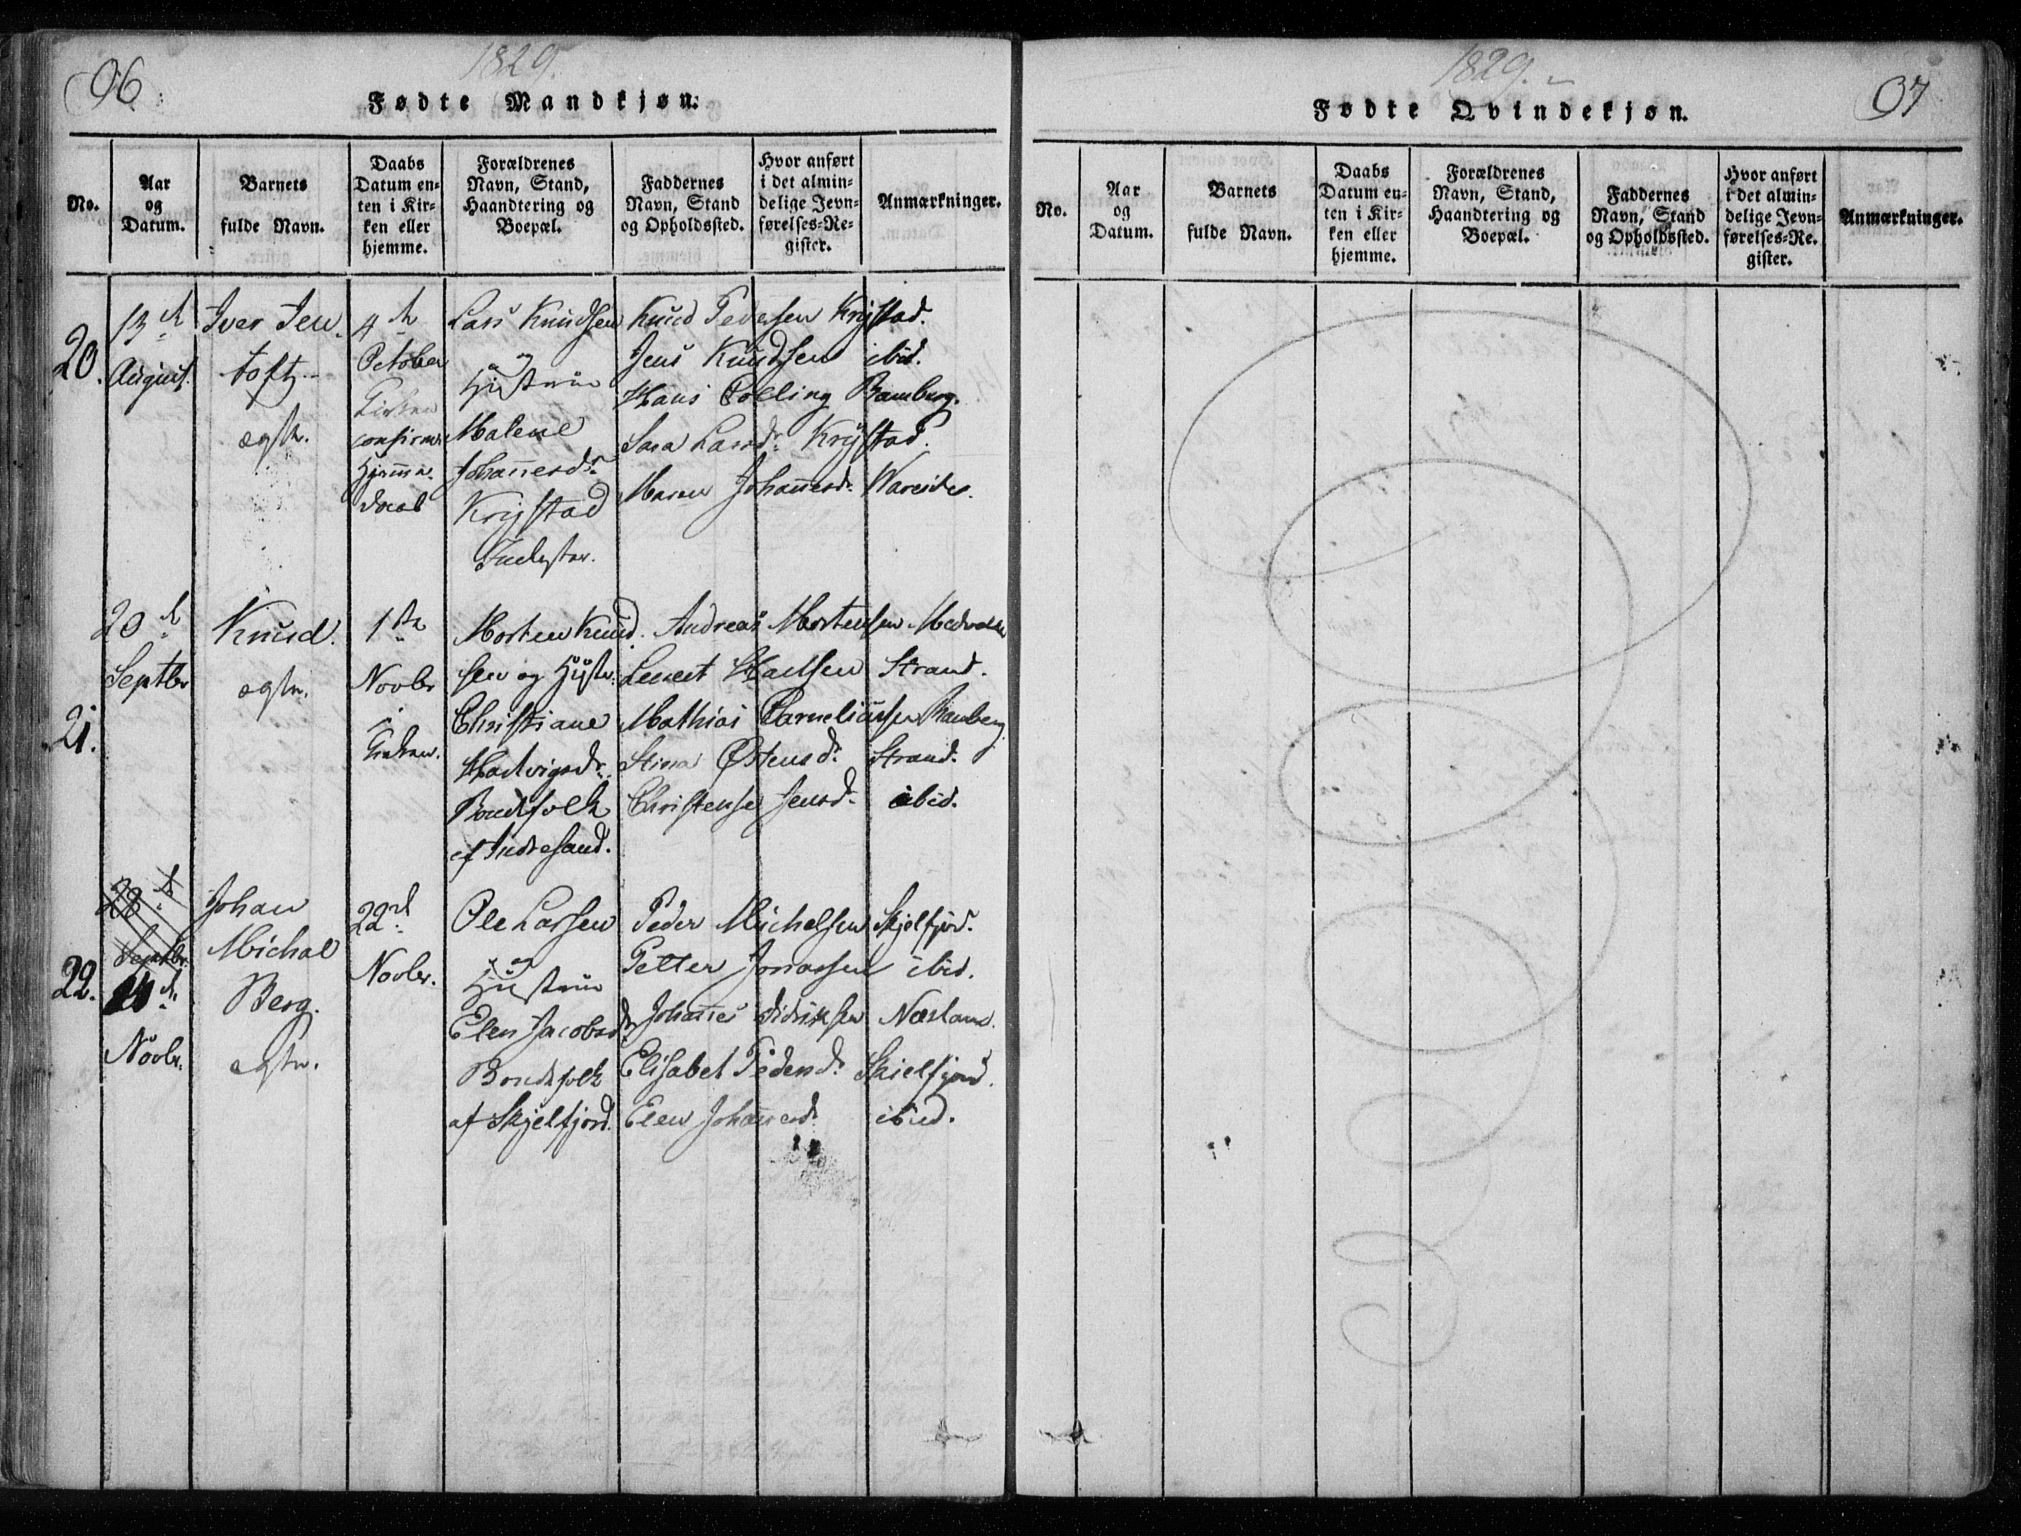 96
1829.
Fødte Mandkjøn.
No.
Aar
og
Datum.
Barnets
fulde Navn.
Daabs
Datum en-
ten i Kir-
ken eller
hjemme.
Forældrenes
Navn, Stand,
Haandtering og
Boepæl.
Faddernes
Navn, Stand
og Opholdssted.
Hvor anført
i det almin-
delige Jevn-
førelses-Re-
gister.
Anmærkninger.
20.
13de
August.
Iver Jen
toft
ægte.
4de
October
Kirken
confirm.
Hjemme
daab
Lars Knudsen
og
Hustrue
Malene
Johannesdr.
Krystad
Inderster.
Knud Pedersen Krystad.
Jens Knudsen ibid.
Hans Colling Ramberg.
Sara Larsdr. Krystad.
Maren Johannesdr. Wareide.
21.
20de
Septbr
Knud.
ægte.
1ste
Novbr
i
Kirken.
Morten Knud
sen og Hustr.
Christiane
Hartvigsdr.
Bondefolk
af Indresand.
Andreas Mortensen
Lenert Strand.
Mathias Corneliussen Ramberg
Stina Østensdr. Strand.
Christense Jensdr. ibid.
22.
20de
Septbr.
Novbr.
Johan
Michal
Berg.
ægte.
22de
Novbr.
Ole Larsen
og
Hustrue
Elen Jacobsdr
Bondefolk
af Skjelfjord.
Peder Michelsen Skjelfjord.
Petter Jonassen ibid.
Johannes Didriksen Nesland.
Elisabet Pedersdr. Skielfjord.
Elen Johannesdr. ibid.
1829.
97
Fødte Qvindekjøn.
No.
Aar
og
Datum.
Barnets
fulde Navn.
Daabs
Datum en-
ten i Kir-
ken eller
hjemme.
Forældrenes
Navn, Stand,
Haandtering og
Boepæl.
Faddernes
Navn, Stand
og Opholdssted.
Hvor anført
i det almin-
delige Jevn-
førelses-Re-
gister.
Anmærkninger.